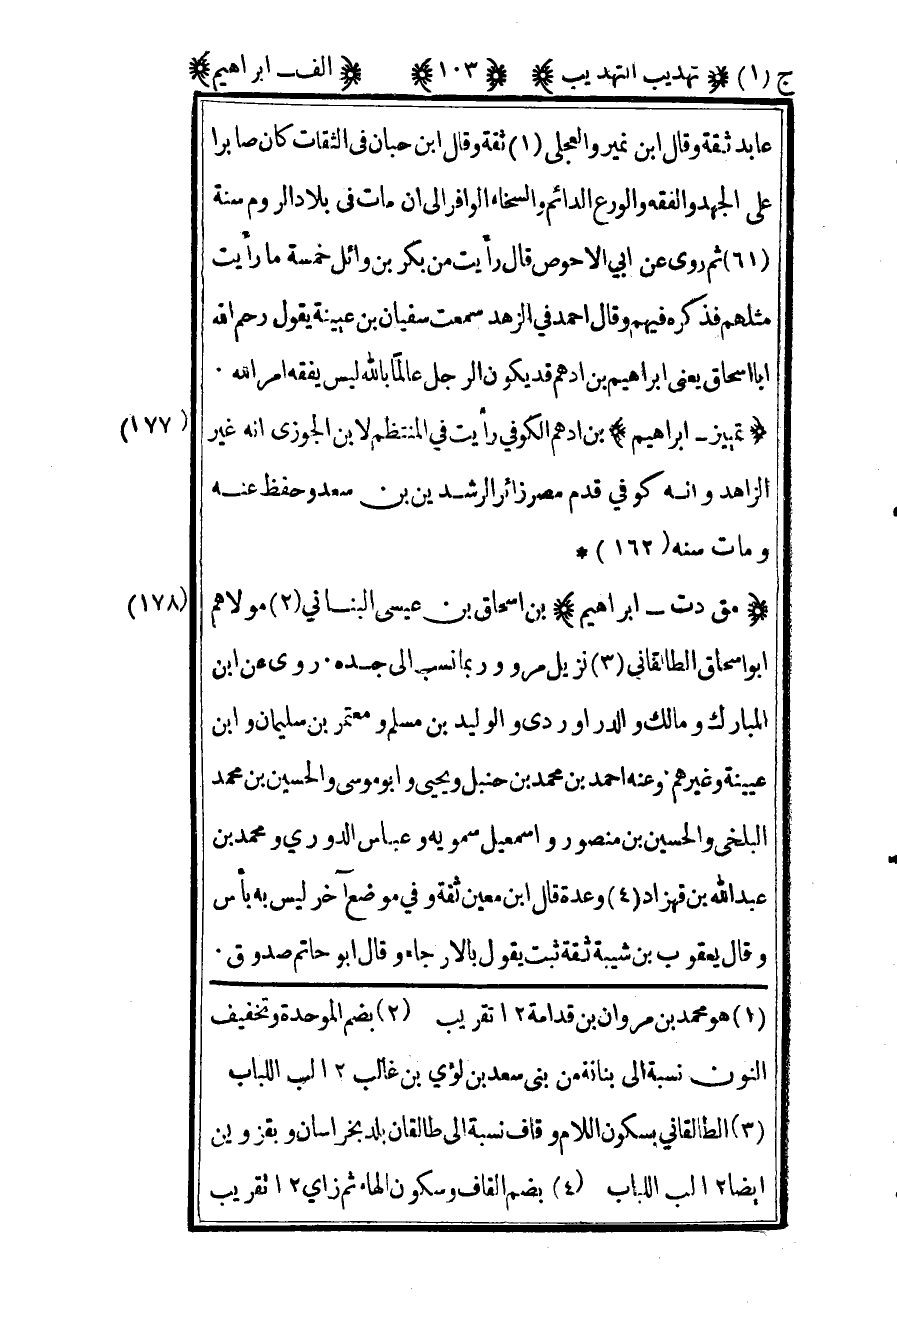 ج (١) ﴿ تهذيب التهذيب ﴾ ﴿ ١٠٣ ﴾ ﴿ الف ـ ابراهيم ﴾
عابد ثقة وقال ابن نمير والعجلى (١) ثقة وقال ابن حبان فى الثقات كان صابرا
على الجهد والفقه والورع الدائم والسخاء الوافر الى ان مات فى بلاد الروم سنة
(٦١) ثم روى عن ابي الاحوص قال رأيت من بكر بن وائل خمسة ما رأيت
مثلهم فذكره فيهم وقال احمد في الزهد سمعت سفيان بن عيينة يقول رحم الله
ابا اسحاق يعنى ابراهيم بن ادهم قد يكون الرجل عالمًا بالله ليس يفقه امر الله ٠
(١٧٧) ﴿ تمييز ـ ابراهيم ﴾ بن ادهم الكوفي رأيت في المنتظم لابن الجوزى انه غير
الزاهد وانه كوفي قدم مصر زائرا لرشدين بن سعد وحفظ عنه
ومات سنه (١٦٢) *
(١٧٨) ﴿ مق دت ـ ابراهيم ﴾ بن اسحاق بن عيسى البناني (٢) مولاهم
ابو اسحاق الطالقاني (٣) نزيل مرو وربما نسب الى جده ٠ روى عن ابن
المبارك ومالك والدراوردى والوليد بن مسلم ومعتمر بن سليمان وابن
عيينة وغيرهم ٠ وعنه احمد بن محمد بن حنبل ويحيى وابو موسى والحسين بن محمد
البلخى والحسين بن منصور واسمعيل سمويه وعباس الدوري ومحمد بن
عبدالله بن قهزاد (٤) وعدة قال ابن معين ثقة وفي موضع آخر ليس به بأس
وقال يعقوب بن شيبة ثقة ثبت يقول بالارجاء وقال ابو حاتم صدوق ٠
(١) هو محمد بن مروان بن قدامة ١٢ تقريب (٢) بضم الموحدة وتخفيف
النون نسبة الى بنانة من بنى سعد بن لؤي بن غالب ١٢ لب اللباب
(٣) الطالقاني بسكون اللام وقاف نسبة الى طالقان بلد بخراسان وبقزوين
ايضا ١٢ لب اللباب (٤) بضم القاف وسكون الهاء ثم زاي ١٢ تقريب